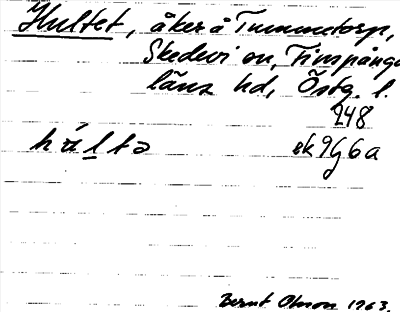 Hultet, åker å Tummetorp,
Skedevi sn, Finspånga
läns hd, Östg. l.
248
húlta ek9G6a
Bernt Olsson 1963.